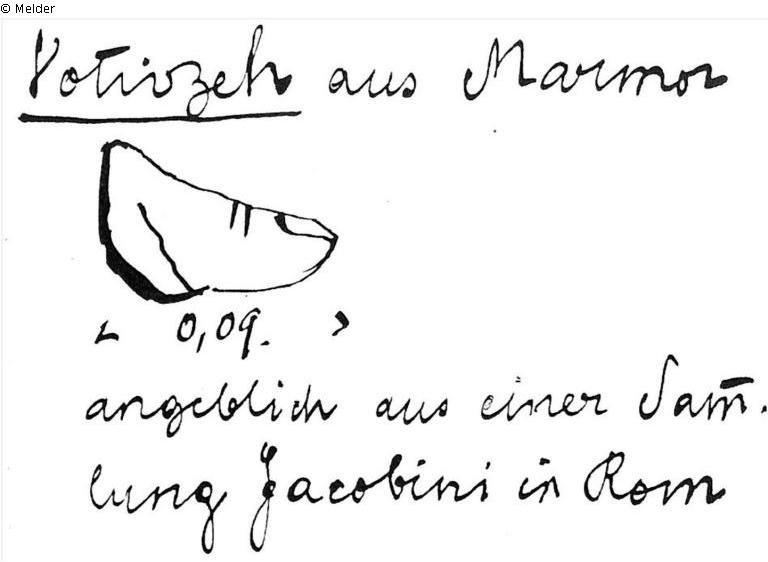 © Melder
Votivzeh aus Marmor
< 0,09. >
angeblich aus einer Sam̄.
lung Jacobini in Rom